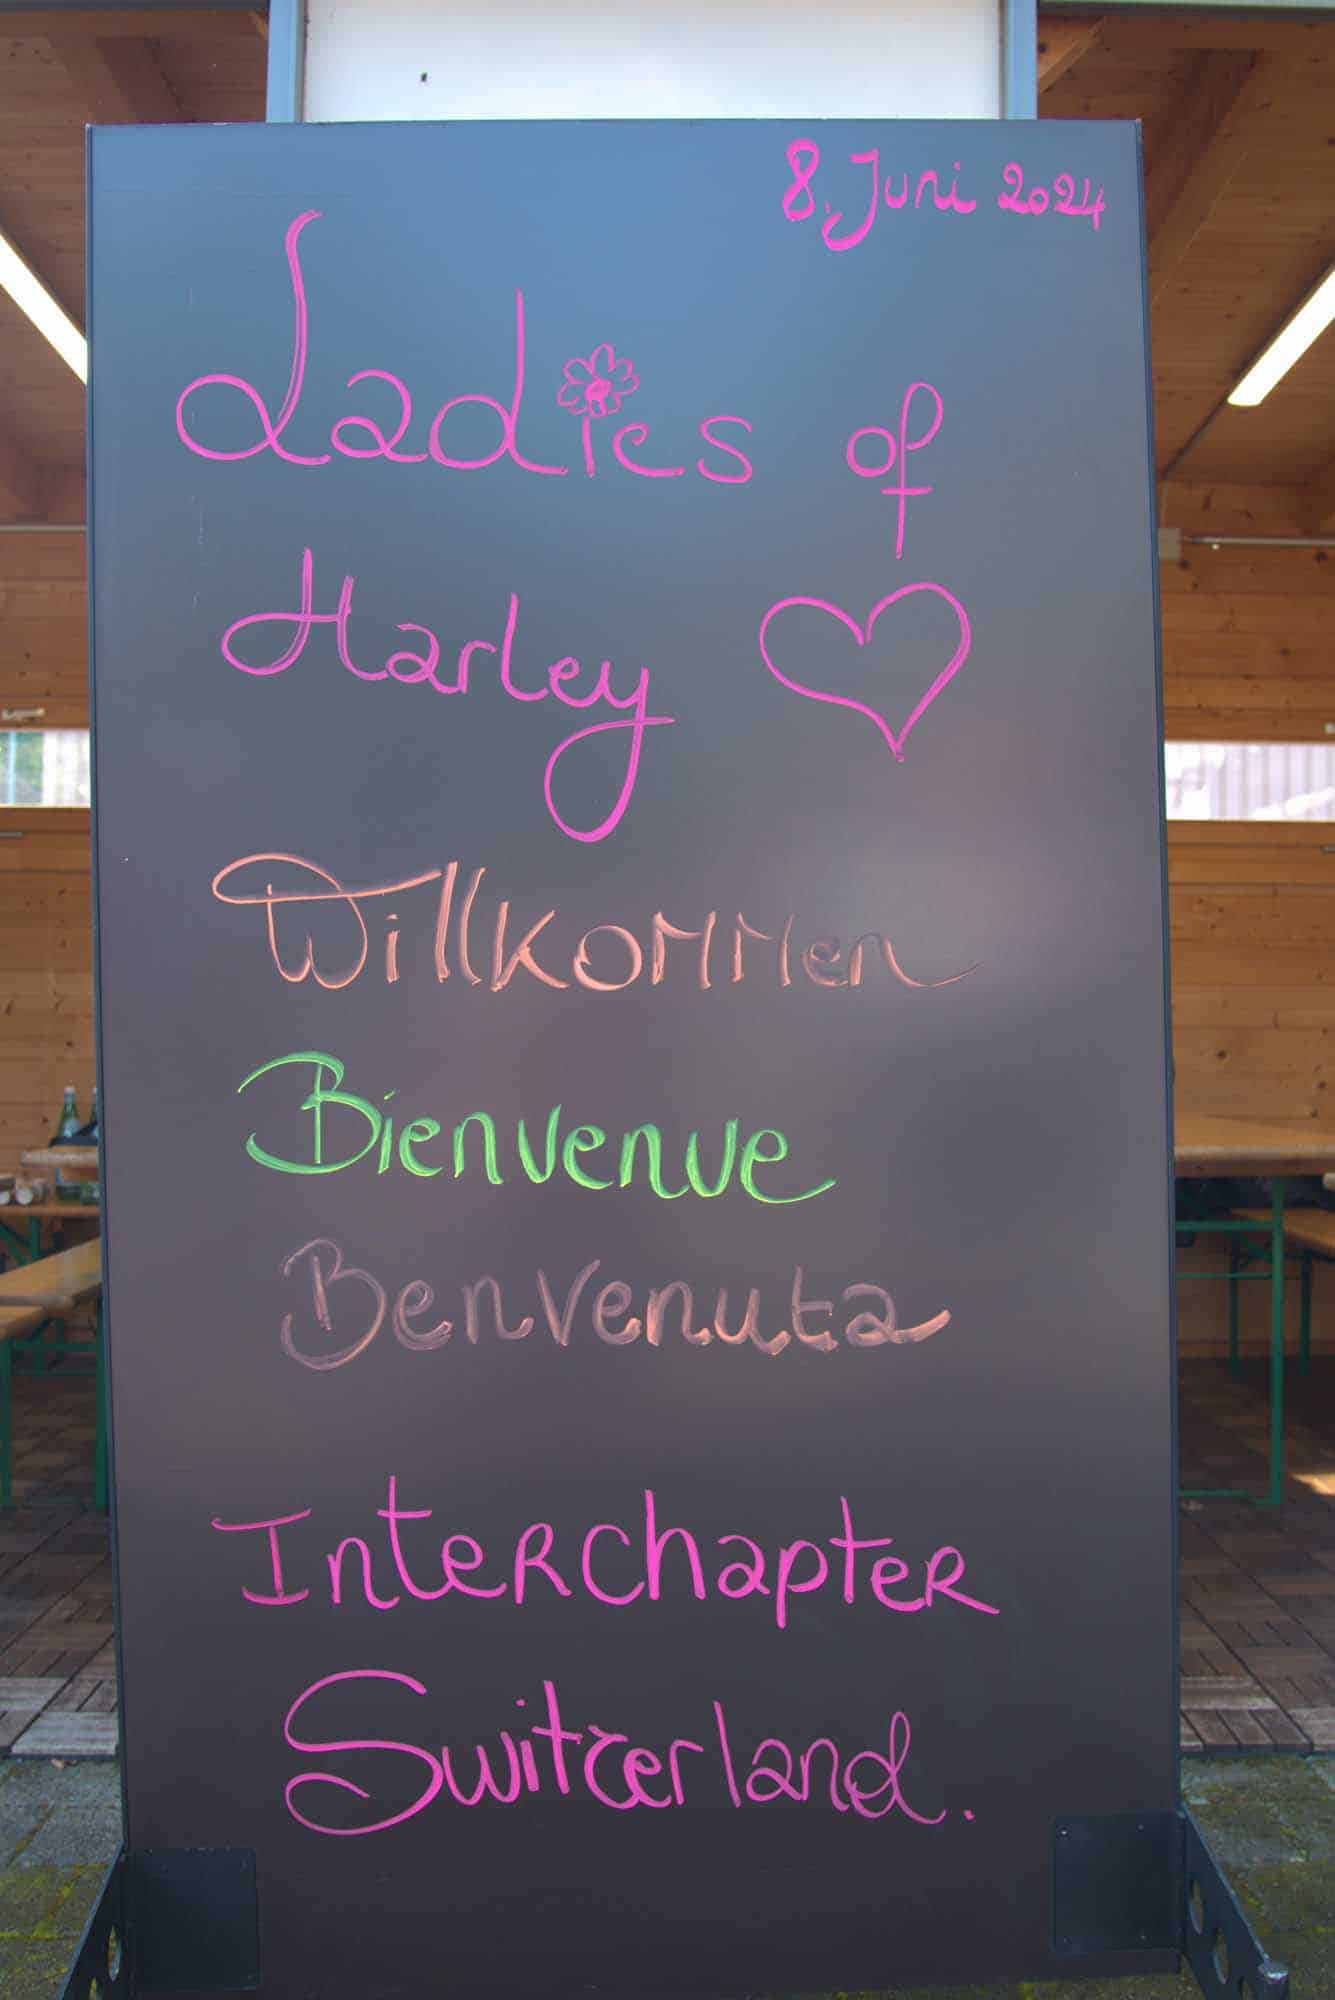 8. Juni 2024
Ladies of
Harley
Willkommen
Bienvenue
Benvenuta
Interchapter
Switzerland.